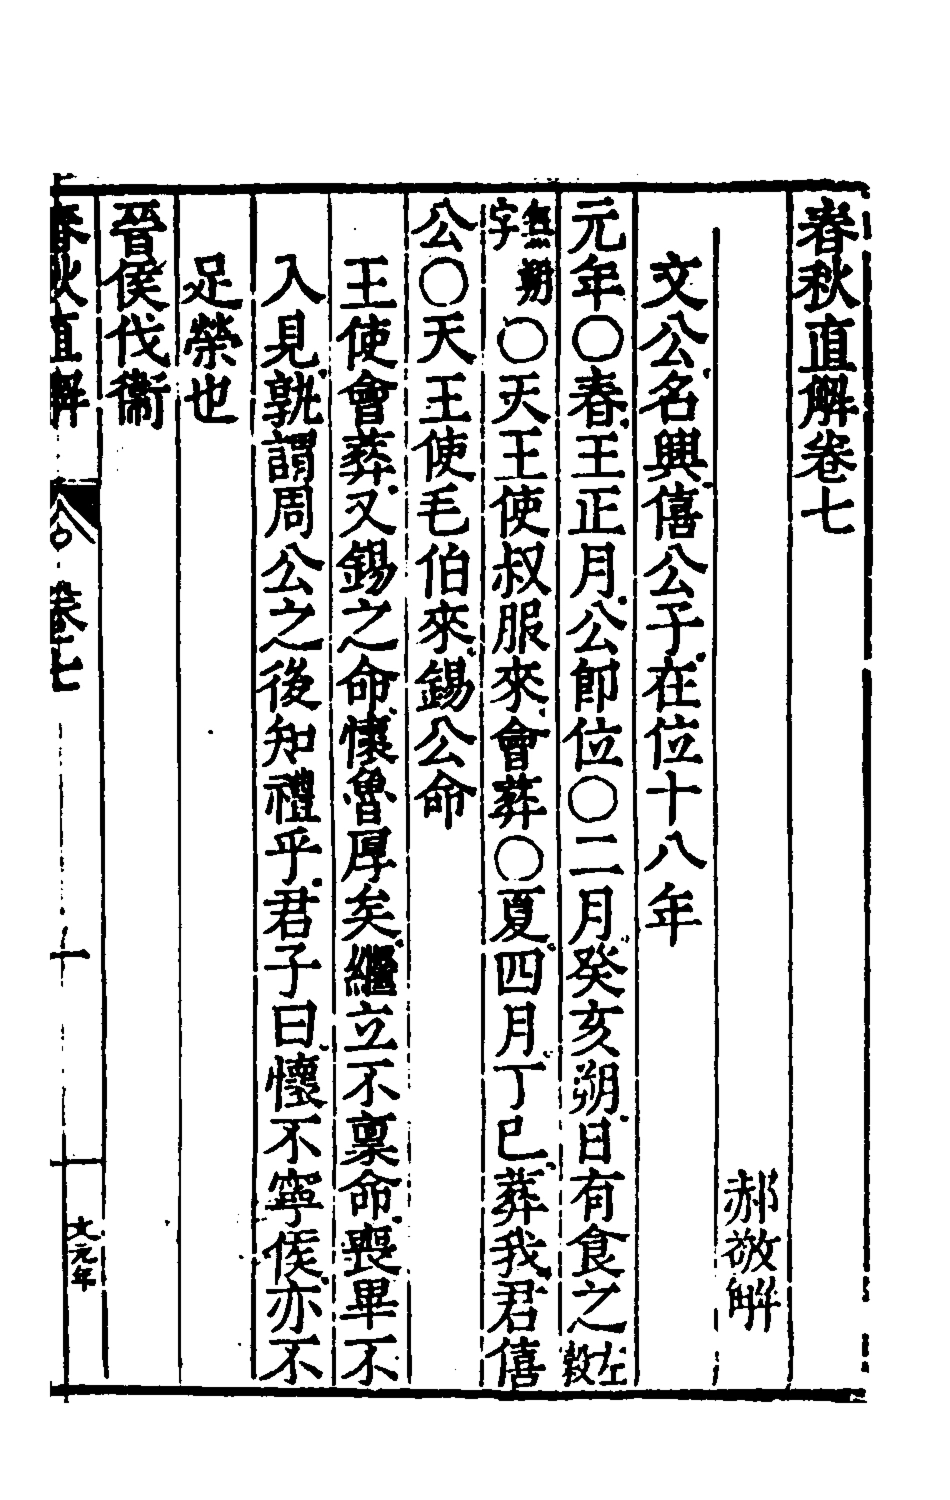 春秋直解卷七
郝敬解
文公名興僖公子在位十八年
元年〇春王正月公卽位〇二月癸亥朔日有食之左穀
無朔字〇天王使叔服來會葬〇夏四月丁巳葬我君僖
公〇天王使毛伯來錫公命
王使會葬又錫之命懷魯厚矣繼立不稟命喪畢不
入見孰謂周公之後知禮乎君子曰懷不寧侯亦不
足榮也
晉侯伐衞
春秋直解 卷七 一 文元年